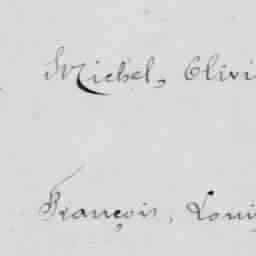 Michel, Olivi
François, Loui